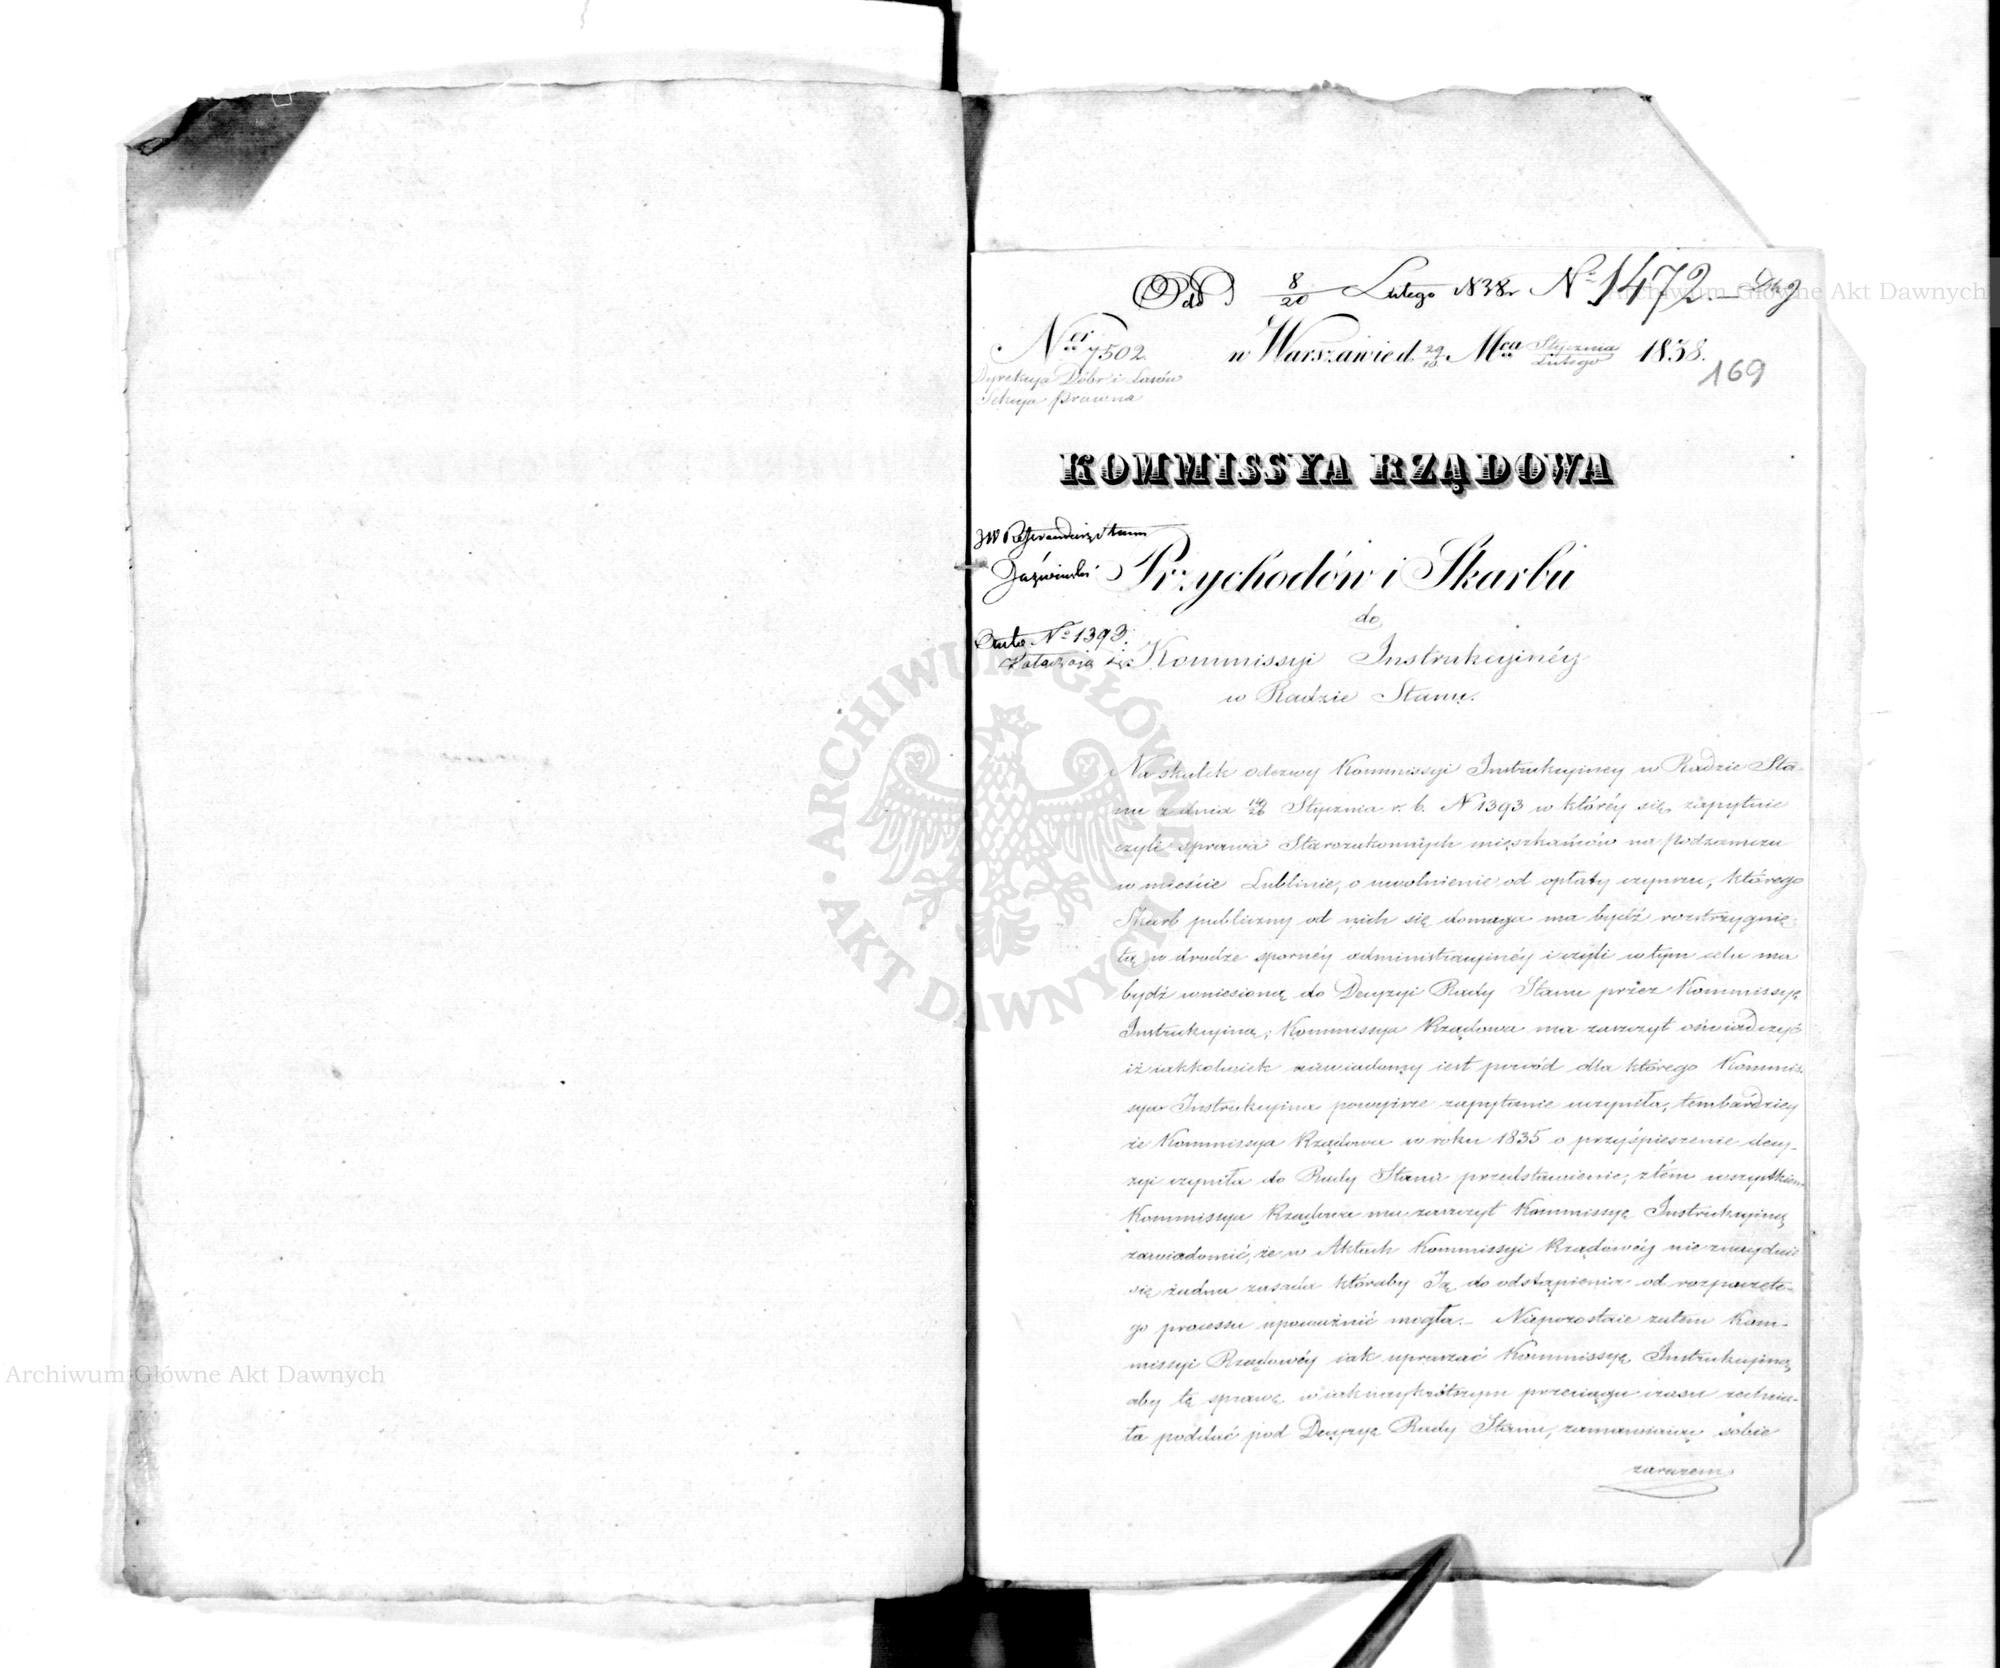 Odd 8/20 Lutego 1838r N° 1472.
N 7502. w Warszawie d. 29/10 Mca Stycznia/Lutego 1838.
169
Dyrekcya Dóbr i Lasów
Sekcya Prawna
KOMMISSYA RZĄDOWA
JW Referendarz Stanu
Przychodów i Skarbu
do
N° 1393.
Kommissyi Instrukcyinéy
w Radzie Stanu.
Na skutek odezwy Kommissyi Instrukcyiney w Radzie Sta-
nu z dnia 14/26 Stycznia r. b. N 1393 w któréy się zapytuie
czyli sprawa Starozakonnych mieszkańców na Podzamczu
w mieście Lublinie, o uwolnienie od opłaty czynszu, którego
Skarb publiczny od nich się domaga ma bydź rozstrzygnię-
tą w drodze spornéy administracyinéy i czyli w tym celu ma
bydź wniesioną do Decyzyi Rady Stanu przez Kommissyę
Instrukcyiną; Kommissya Rządowa ma zaszczyt oświadczyć
iż iakkolwiek niewiadomy iest powód dla którego Kommis-
sya Instrukcyina powyższe zapytanie uczyniła, tembardziey
że Kommissya Rządowa w roku 1835 o przyśpieszenie decy-
zyi czyniła do Rady Stanu przedstawienie, z tém wszystkiem
Kommissya Rządowa ma zaszczyt Kommissyę Instrukcyiną
zawiadomić, że w Aktach Kommissyi Rządowéy nie znayduie
się żadna zasada któraby Ią do odstąpienia od rozpoczęte-
go processu upoważnić mogła. – Niepozostaie zatem Kom-
missyi Rządowéy iak upraszać Kommissyę Instrukcyiną
aby tę sprawę w iak naykrótszym przeciągu czasu zechcia-
ła poddać pod Decyzyę Rady Stanu, zamawiaiąc sobie
zarazem
Archiwum Główne Akt Dawnych
Archiwum Główne Akt Dawnych
ARCHIWUM GŁÓWNE · AKT DAWNYCH ·